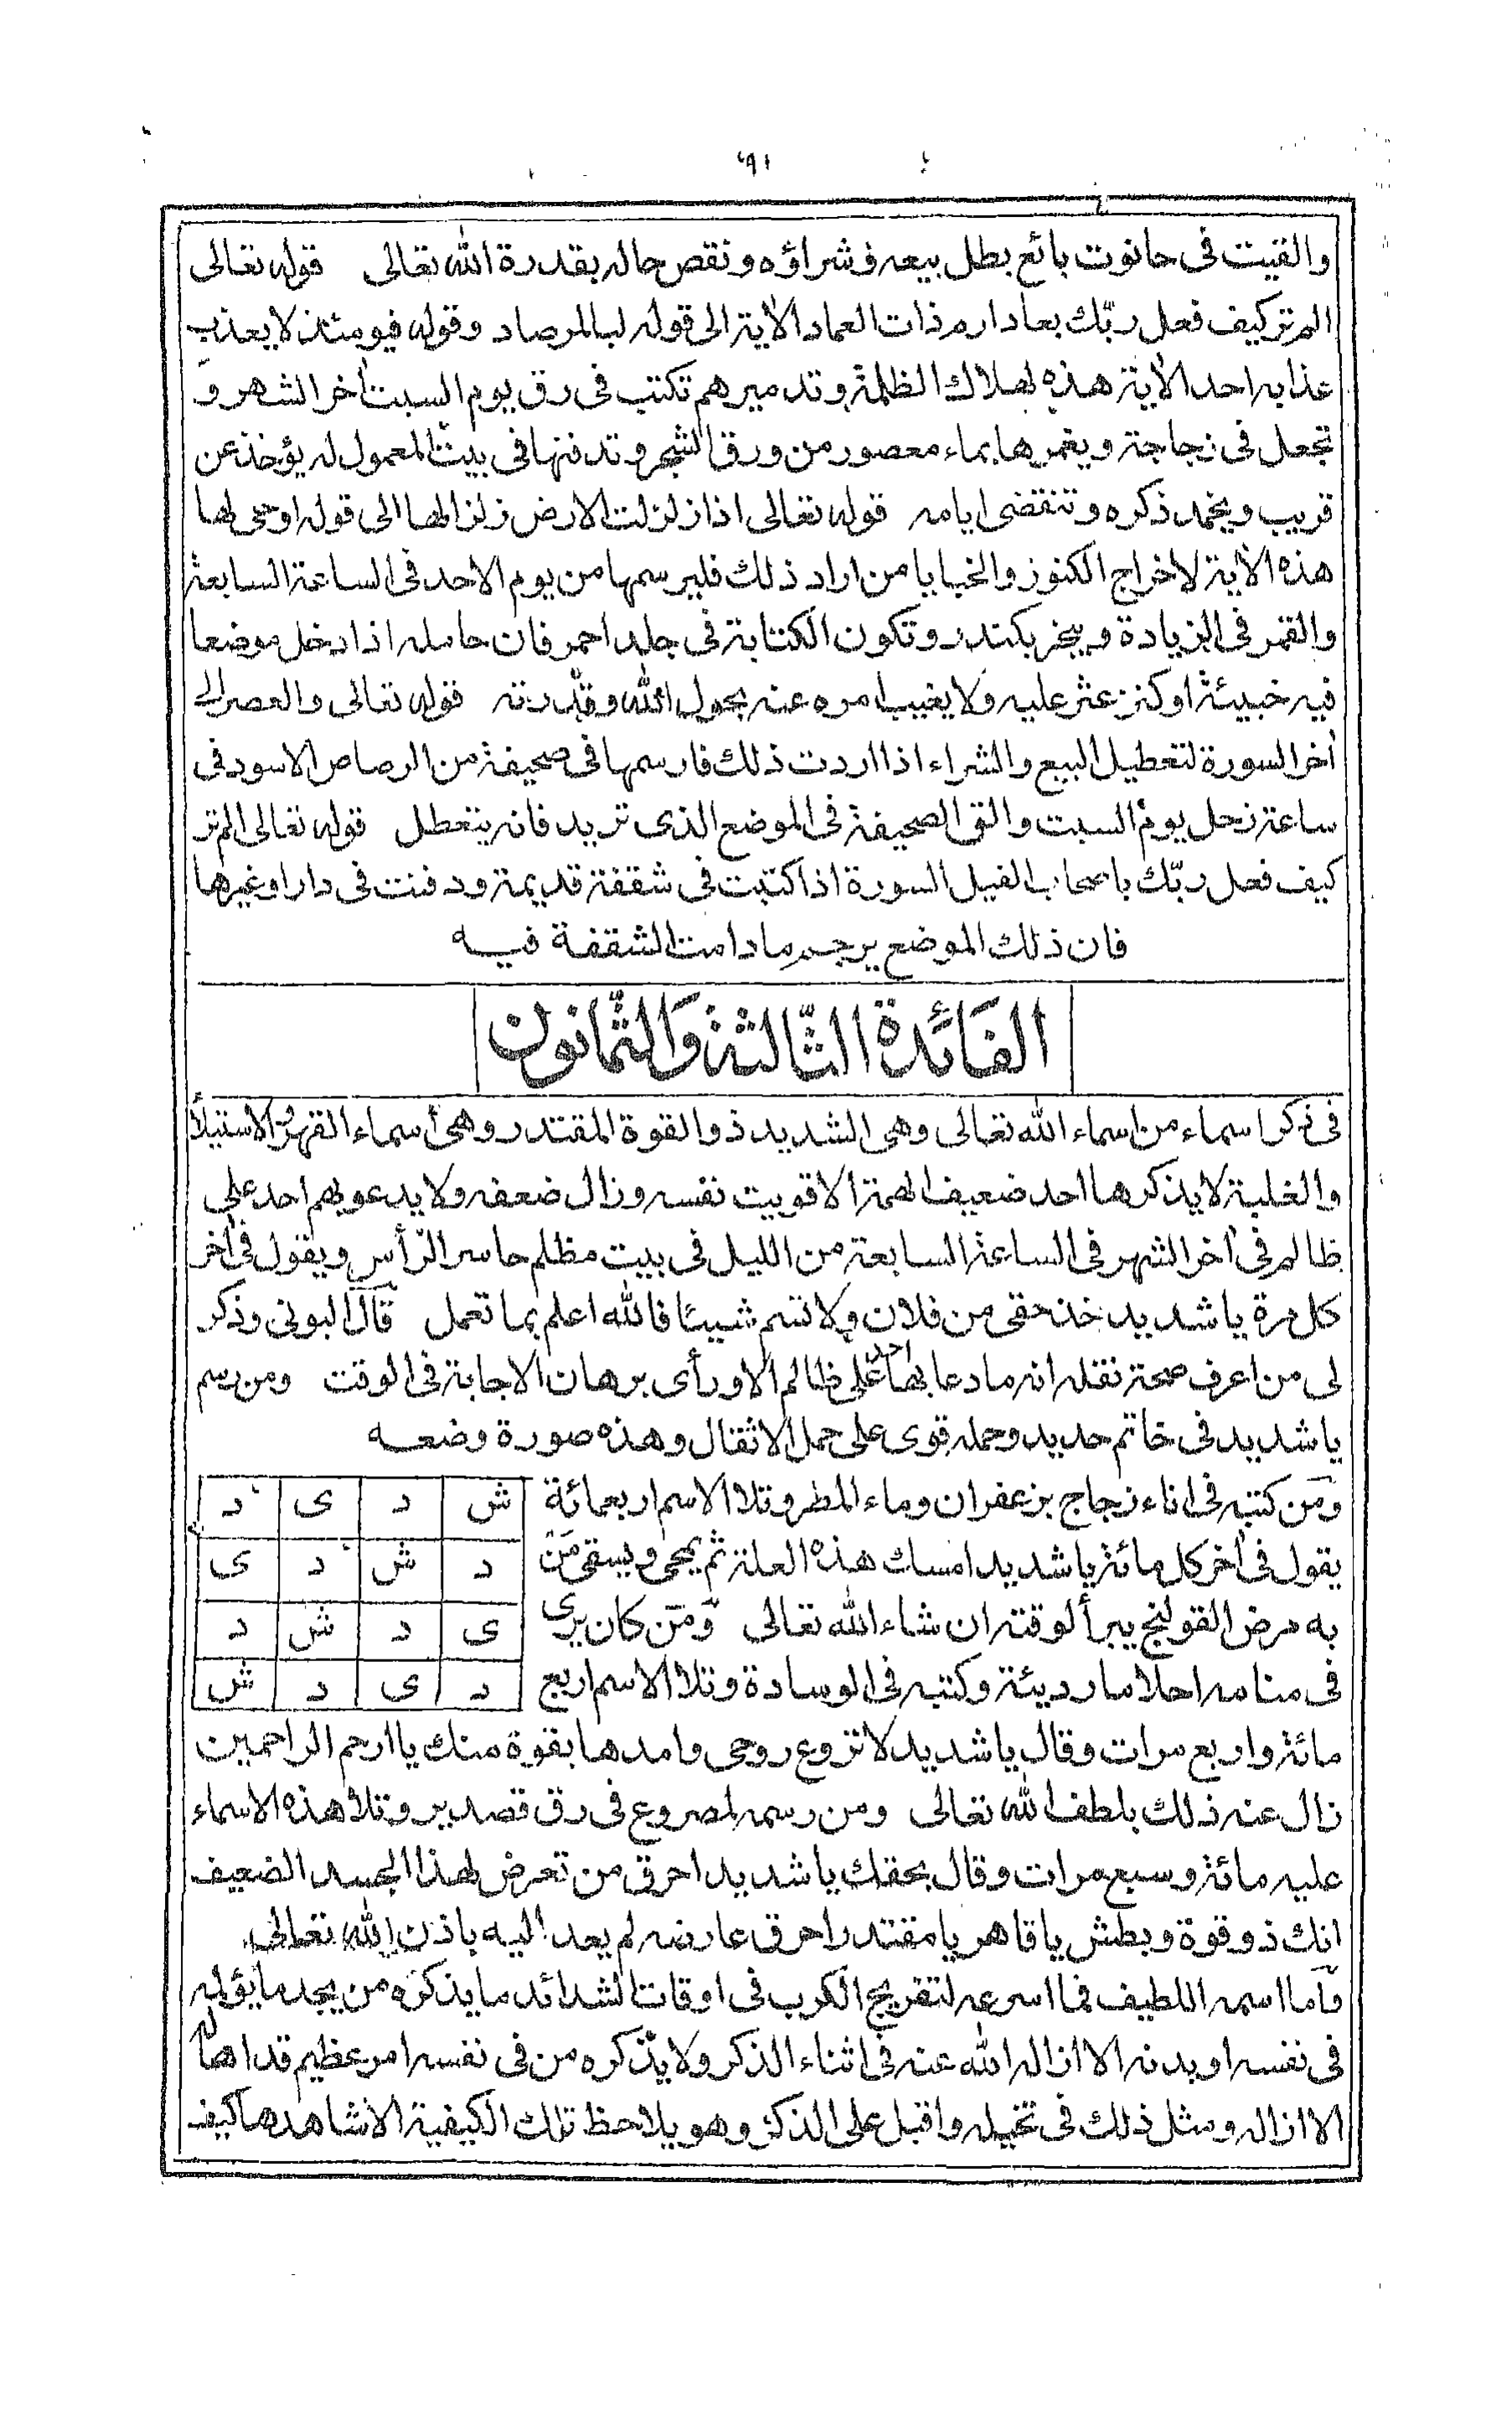 ٩١
والقيت فى حانوت بائع بطل بيعه وشراؤه ونقص حاله بقدرة الله تعالى قوله تعالى
الم تر كيف فعل ربّك بعاد ارم ذات العماد الآية الى قوله لبالمرصاد وقوله فيومئذ لا يعذب
عذابه احد الآية هذه لهلاك الظلمة وتدميرهم تكتب فى رق يوم السبت آخر الشهر و
تجعل فى زجاجة ويغمرها بماء معصور من ورق الشجر وتدفنها فى بيت المعمول له يؤخذ عن
قريب ويخمد ذكره وتنقضى ايامه قوله تعالى اذا زلزلت الارض زلزالها الى قوله اوحى لها
هذه الآية لاخراج الكنوز والخبايا من اراد ذلك فليرسمها من يوم الاحد فى الساعة السابعة
والقمر فى الزيادة ويبخر بكندر وتكون الكتابة فى جلد احمر فان حامله اذا دخل موضعا
فيه خبيئة او كنز عثر عليه ولا يغيب امره عنه بحول الله وقدرته قوله تعالى والعصر الى
آخر السورة لتعطيل البيع والشراء اذا اردت ذلك فارسمها فى صحيفة من الرصاص الاسود فى
ساعة زحل يوم السبت والق الصحيفة فى الموضع الذى تريد فانه يتعطل قوله تعالى الم تر
كيف فعل ربّك باصحاب الفيل السورة اذا كتبت فى شقفة قديمة ودفنت فى دار او غيرها
فان ذلك الموضع يرجم ما دامت الشقفة فيه
الفَائَدة الثّالثة وَالثّمانون
فى ذكر اسماء من اسماء الله تعالى وهى الشديد ذو القوة المقتدر وهى أسماء القهر والاستيلا
والغلبة لا يذكرها احد ضعيف الهمة الا قويت نفسه وزال ضعفه ولا يدعو بهم احد على
ظالم فى آخر الشهر فى الساعة السابعة من الليل فى بيت مظلم حاسر الرّأس ويقول فى آخر
كل مرة يا شديد خذ حقى من فلان ولا تسم شيئا فالله اعلم بما تعمل قال البونى وذكر
لى من اعرف صحة نقله انه ما دعا بها احد على ظالم الا ورأى برهان الاجابة فى الوقت ومن رسم
يا شديد فى خاتم حديد وحمله قوى على حمل الاثقال وهذه صورة وضعه
ومن كتبه فى اناء زجاج بزعفران وماء المطر وتلا الاسم اربعمائة
يقول فى آخر كل مائة يا شديد امسك هذه العلة ثم يمحى ويسقى من
به مرض القولنج يبرأ لوقته ان شاء الله تعالى ومن كان يرى
فى منامه احلاما رديئة وكتبه فى الوسادة وتلا الاسم اربع
ش د ى د
د ش د ى
ى د ش د
د ى د ش
مائة واربع مرات وقال يا شديد لا تروع روحى وامدها بقوة منك يا ارحم الراحمين
زال عنه ذلك بلطف الله تعالى ومن رسمه لمصروع فى رق قصدير وتلا هذه الاسماء
عليه مائة وسبع مرات وقال بحقك يا شديد احرق من تعرض لهذا الجسد الضعيف
انك ذو قوة وبطش يا قاهر يا مقتدر احرق عارضه لم يعد اليه باذن الله تعالى
وأما اسمه اللطيف فما اسرعه لتفريج الكرب فى اوقات الشدائد ما يذكره من يجد ما يؤلمه
فى نفسه او بدنه الا ازاله الله عنه فى اثناء الذكر ولا يذكره من فى نفسه امر عظيم قد اهاله
الا ازاله ومثل ذلك فى تخيله واقبل على الذكر وهو يلاحظ تلك الكيفية الا شاهدها كيف